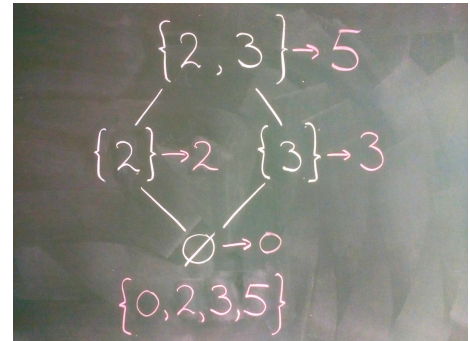 {2, 3}→5
{2}→2 {3}→3
∅→0
{0,2,3,5}